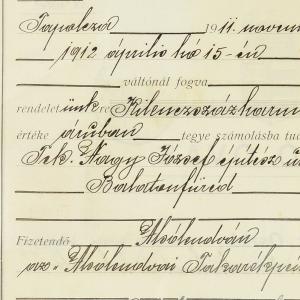 Tapolcza 1911. novem
1912 április hó 15-én
váltónál fogva
rendelet ünk re Kilenczszázharm
értéke áruban tegye számolásba tud
Tek. Nagy József építész ú
Balatonfüred
Fizetendő Alsólendván
az „Alsólendvai Takarékpé